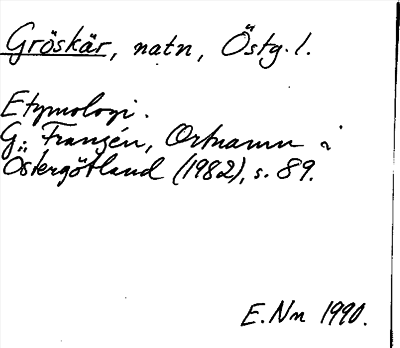 Gröskär, natn, Östg. l.
Etymologi.
G. Franzén, Ortnamn i
Östergötland (1982), s. 89.
E. Nn 1990.